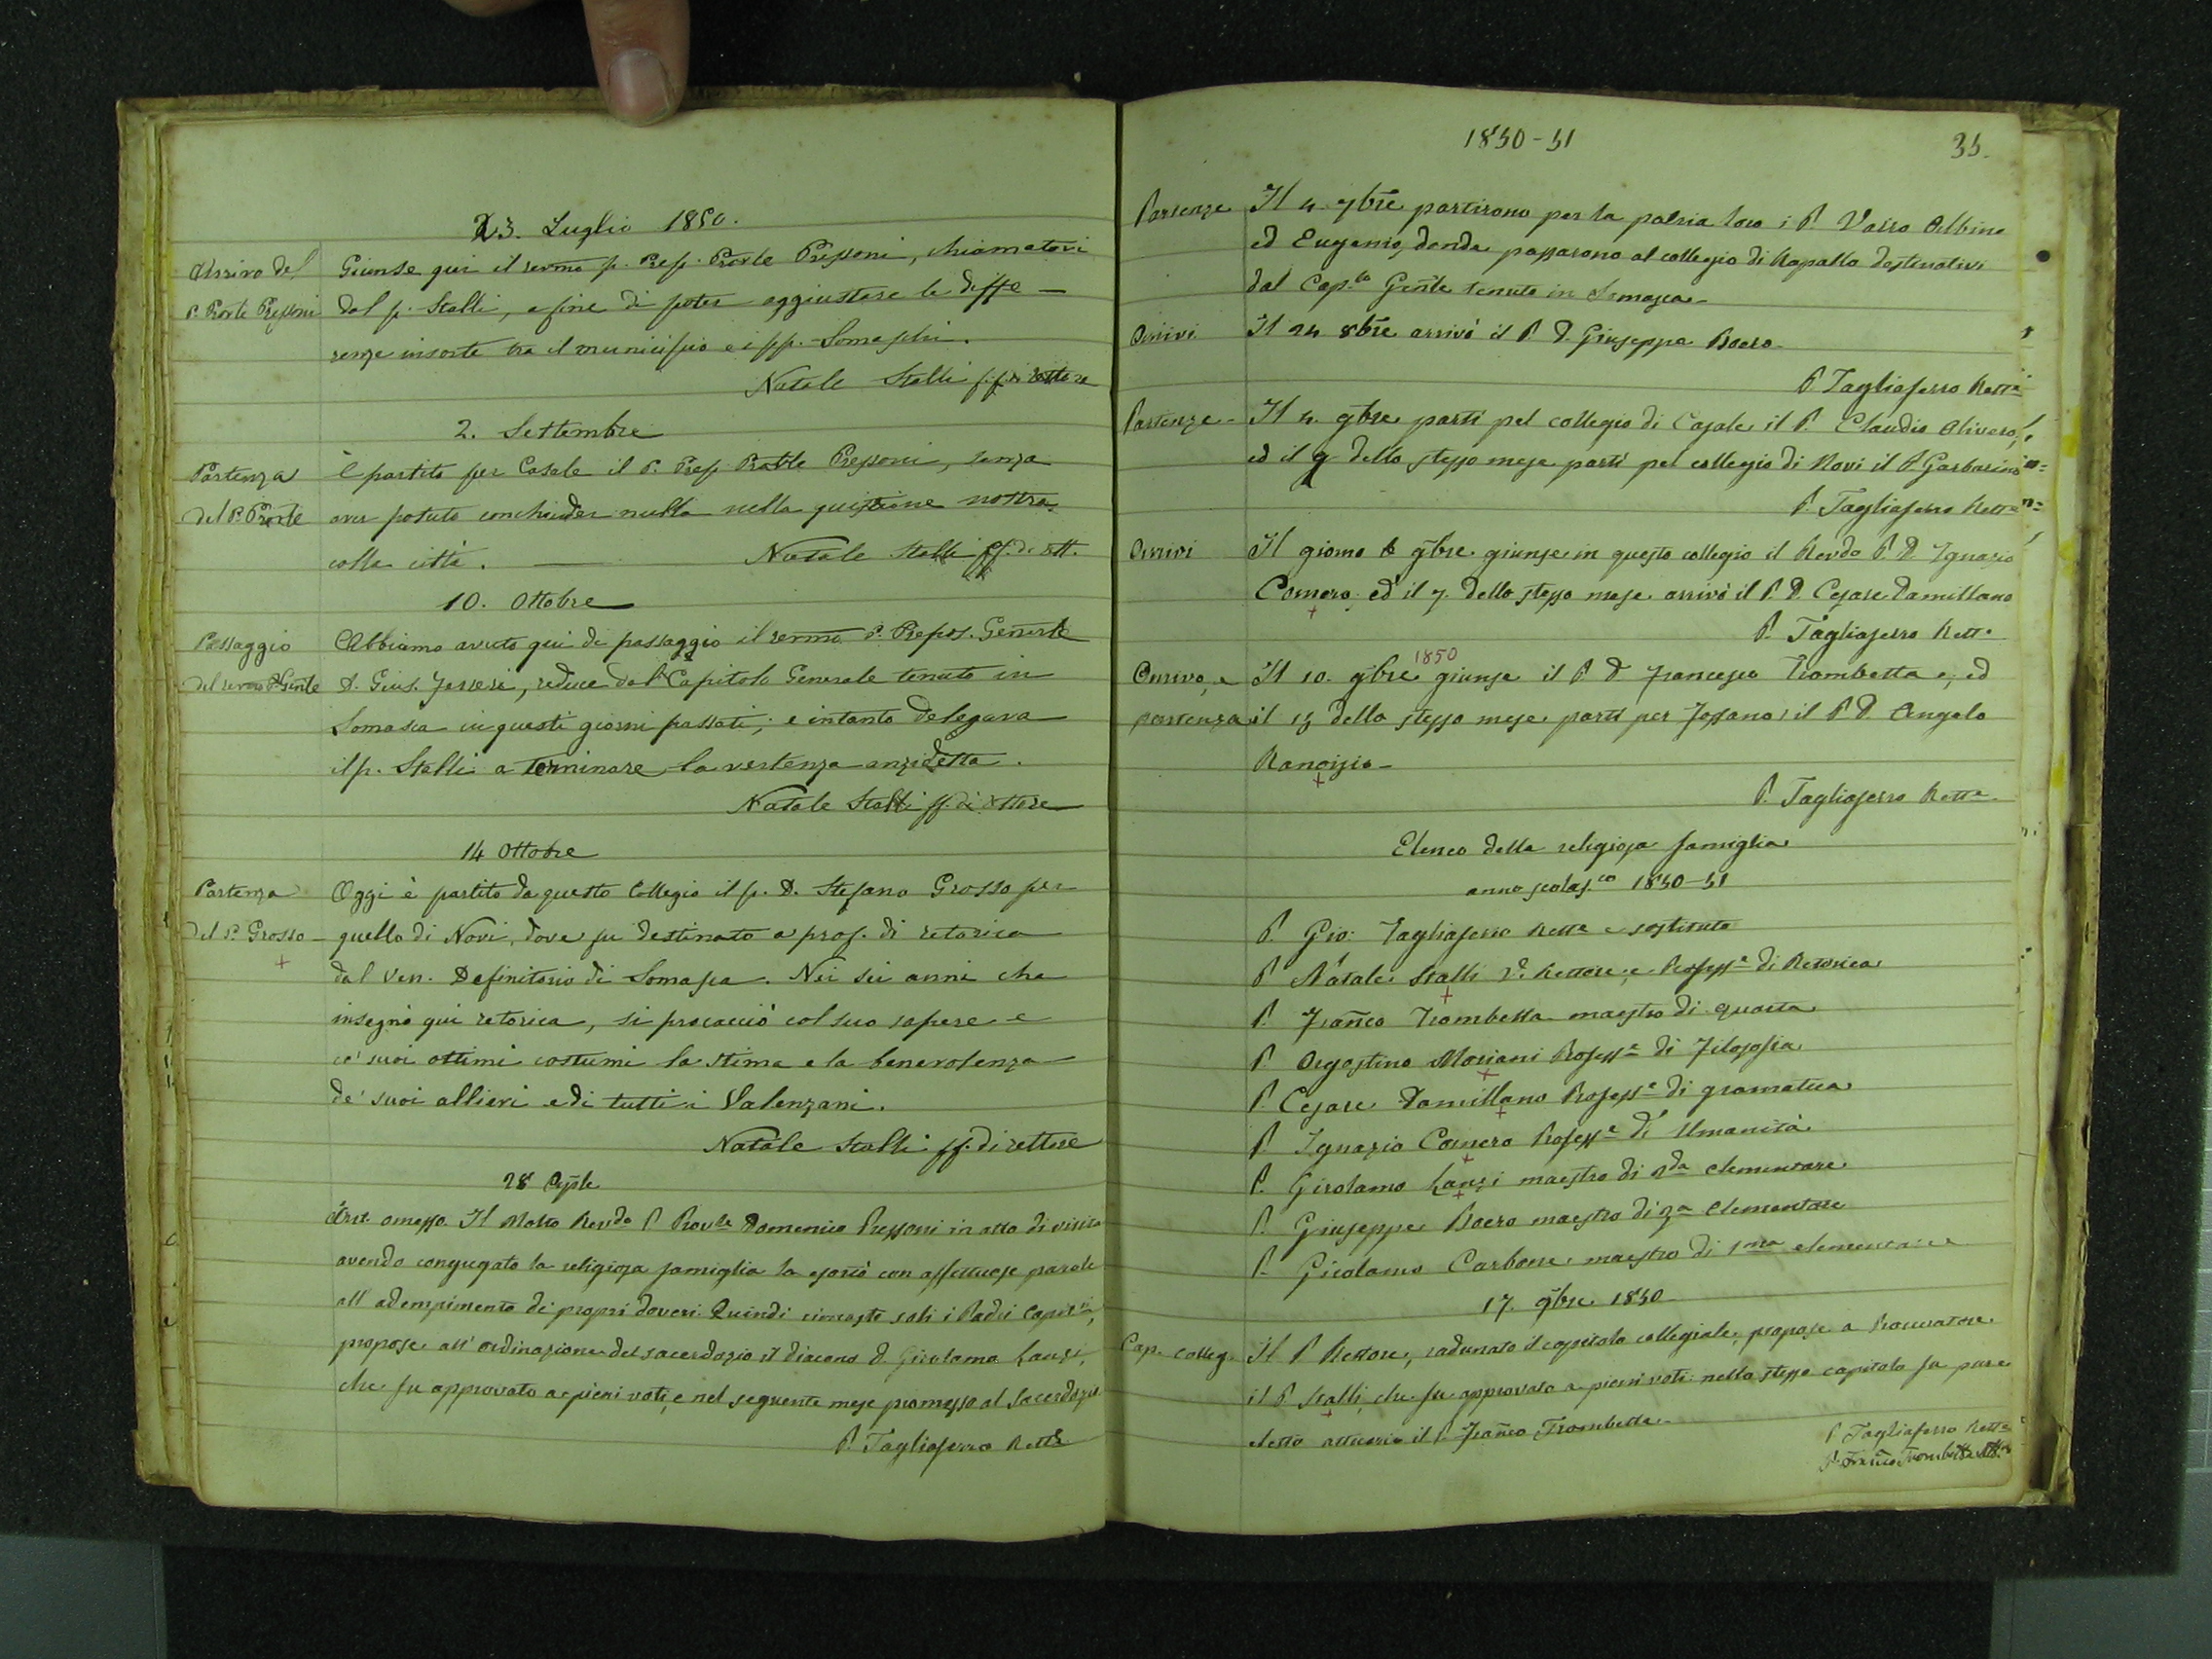 23. Luglio 1850.
Arrivo del Giunse qui il revmo p. Prep. Provle Pressoni, chiamatovi
P. Provle Pressoni dal p. Stalli, a fine di poter aggiustare le diffe-
renze insorte tra il municipio e i pp. Somaschi.
Natale Stalli f.f. di rettore
2. Settembre
Partenza È partito per Casale il P. Prep. Provle Pressoni, senza
del P. Provle aver potuto conchiuder nulla nella quistione nostra
colla città. — Natale Stalli ff. di rett.
10. Ottobre
Passaggio Abbiamo avuto qui di passaggio il revmo P. Prepos. Generle
del revmo P. Genle D. Gius. Ferreri, reduce dal Capitolo Generale tenuto in
Somasca in questi giorni passati; e intanto delegava
il p. Stalli a terminare la vertenza anzidetta.
Natale Stalli ff. di rettore
14 Ottobre
Partenza Oggi è partito da questo Collegio il p. D. Stefano Grosso per
del P. Grosso - quello di Novi, dove fu destinato a prof. di retorica
dal Ven. Definitorio di Somasca. Nei sei anni che
insegnò qui retorica, si procacciò col suo sapere e
co' suoi ottimi costumi la stima e la benevolenza
de' suoi allievi e di tutti i Valenzani.
Natale Stalli ff. di rettore
28 Aprle
omesso Il Molto Revdo P. Provle Domenico Pressoni in atto di visita
avendo congregato la religiosa famiglia la esortò con affettuose parole
all' adempimento de proprj doveri. Quindi rimasti soli i Padri Capitri,
propose all' ordinazione del sacerdozio il diacono D. Girolamo Lanzi,
che fu approvato a pieni voti, e nel seguente mese promosso al Sacerdozio
P. Tagliaferro Rette
1850-51
35.
Partenze Il 4. 7bre partirono per la patria loro i P. Vairo Albino
ed Eugenio, donde passarono al collegio di Rapallo destinativi
dal Cap.lo Genle tenuto in Somasca-
Arrivi Il 24 8bre arrivò il P. D. Giuseppe Boero-
P. Tagliaferro Rette
Partenze- Il 4. 9bre partì pel collegio di Casale il P. Claudio Olivero,
ed il 9 dello stesso mese partì pel collegio di Novi il P. Garbarino
P. Tagliaferro Rette
Arrivi Il giorno 6 9bre giunse in questo collegio il Revdo P. D. Ignazio
Comero ed il 7. dello stesso mese arrivò il P. D. Cesare Damillano
P. Tagliaferro Rette
1850
Arrivo, e Il 10. 9bre giunse il P. D Francesco Trombetta e, ed
partenza il 13 dello stesso mese partì per Fossano il P. D. Angelo
Rancizio-
P. Tagliaferro Rette
Elenco della religiosa famiglia
anno scolas.co 1850-51
P. Gio: Tagliaferro Rette e sostituto
P. Natale Stalli Ve Rettore, e Professe di Retorica
P. Franco Trombetta maestro di quarta
P. Agostino Moriani Professe di Filosofia
P. Cesare Damillano Professe di gramatica
P. Ignazio Comero Professe di Umanità
P. Girolamo Lanzi maestro di 2da elementare
P. Giuseppe Boero maestro di 3a elementare
P. Girolamo Carbone maestro di 1ma elementare
17. 9bre 1850
Cap. colleg. Il P. Rettore, radunato il capitolo collegiale, propose a Procuratore
il P. Stalli, che fu approvato a pieni voti: nello stesso capitolo fu pure
eletto attuario il P. Franco Trombetta-
P. Tagliaferro Rette
P. Franco Trombetta Att.